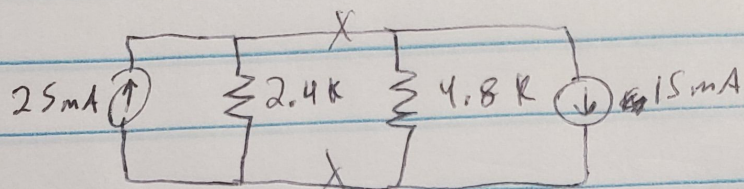 X
25mA 2.4K 4.8K 15mA
X